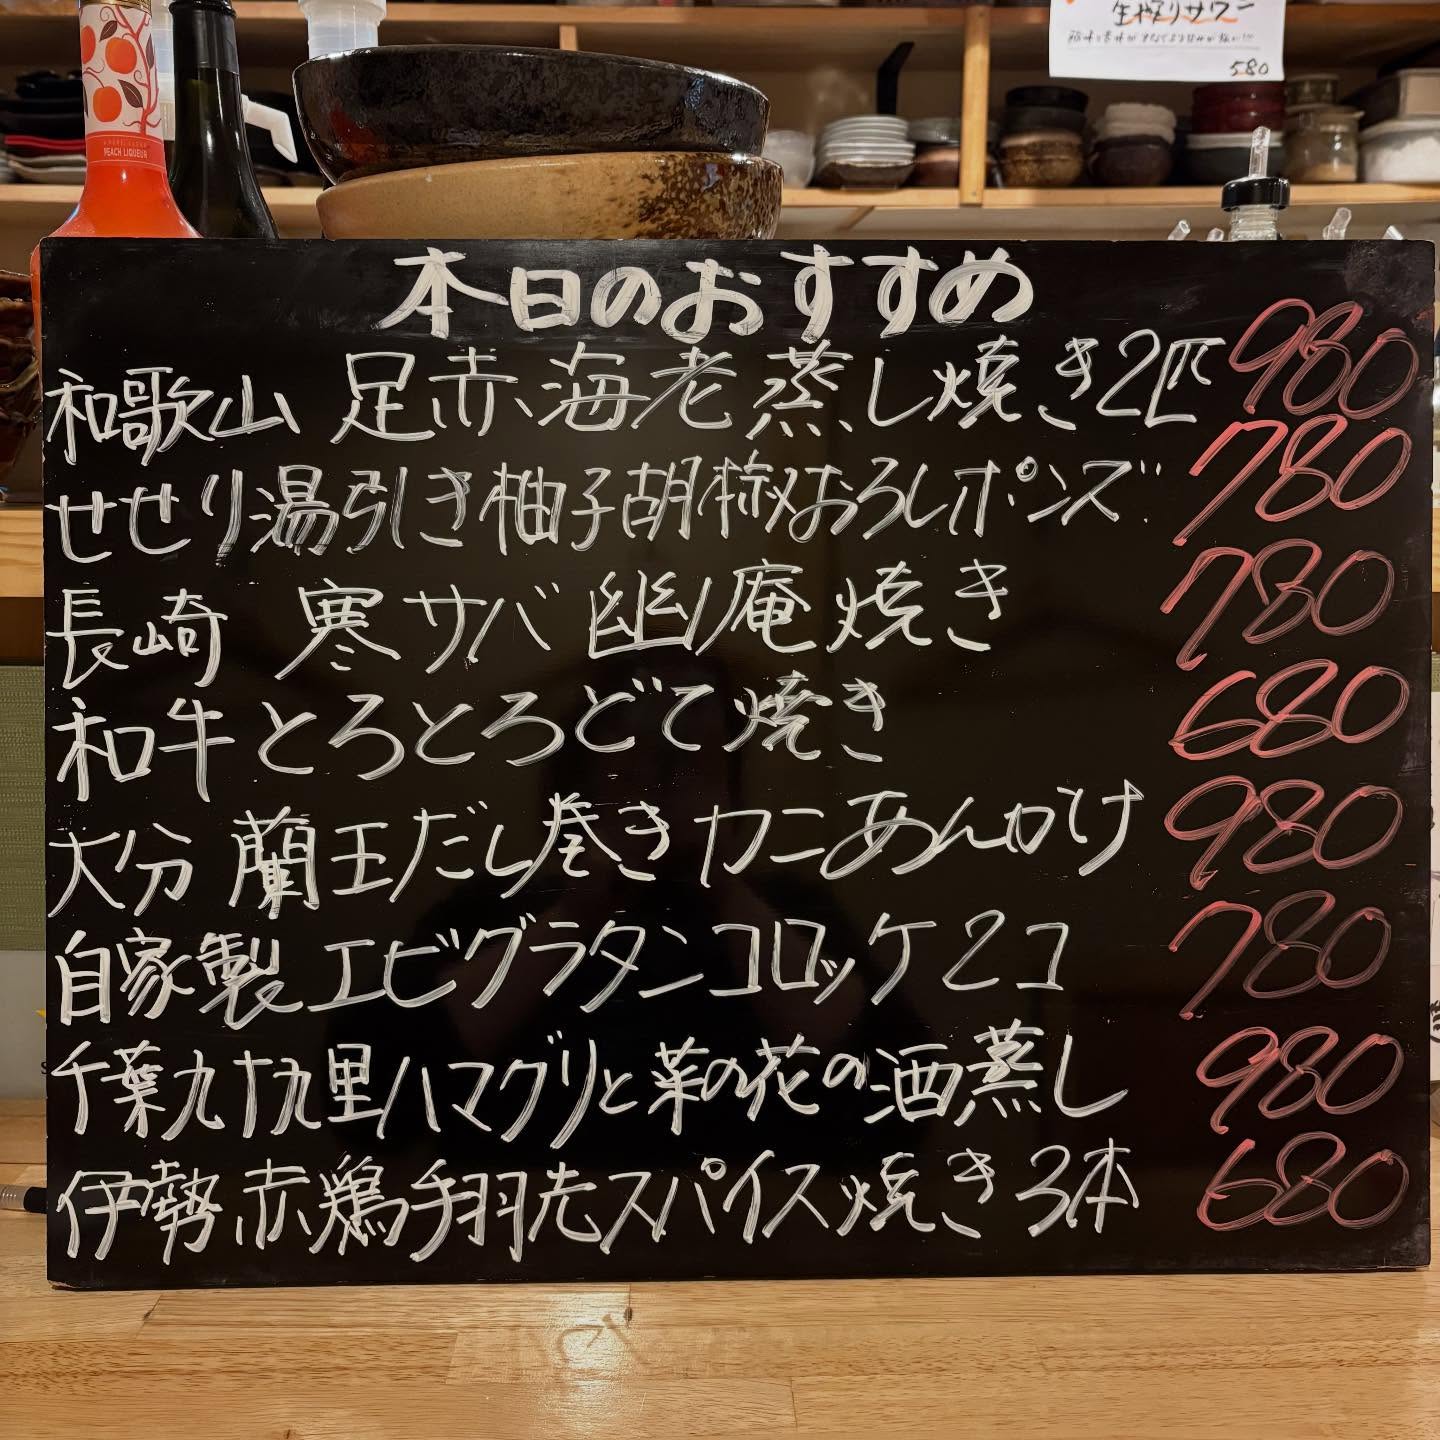 PEACH LIQUEUR
580
本日のおすすめ
和歌山 足赤海老蒸し焼き2匹 980
せせり湯引き柚子胡椒おろしポンズ 780
長崎 寒サバ幽庵焼き 780
和牛とろとろどて焼き 680
大分 蘭王だし巻きカニあんかけ 980
自家製エビグラタンコロッケ2コ 780
千葉九十九里ハマグリと菜の花の酒蒸し 980
伊勢赤鶏手羽先スパイス焼き3本 680